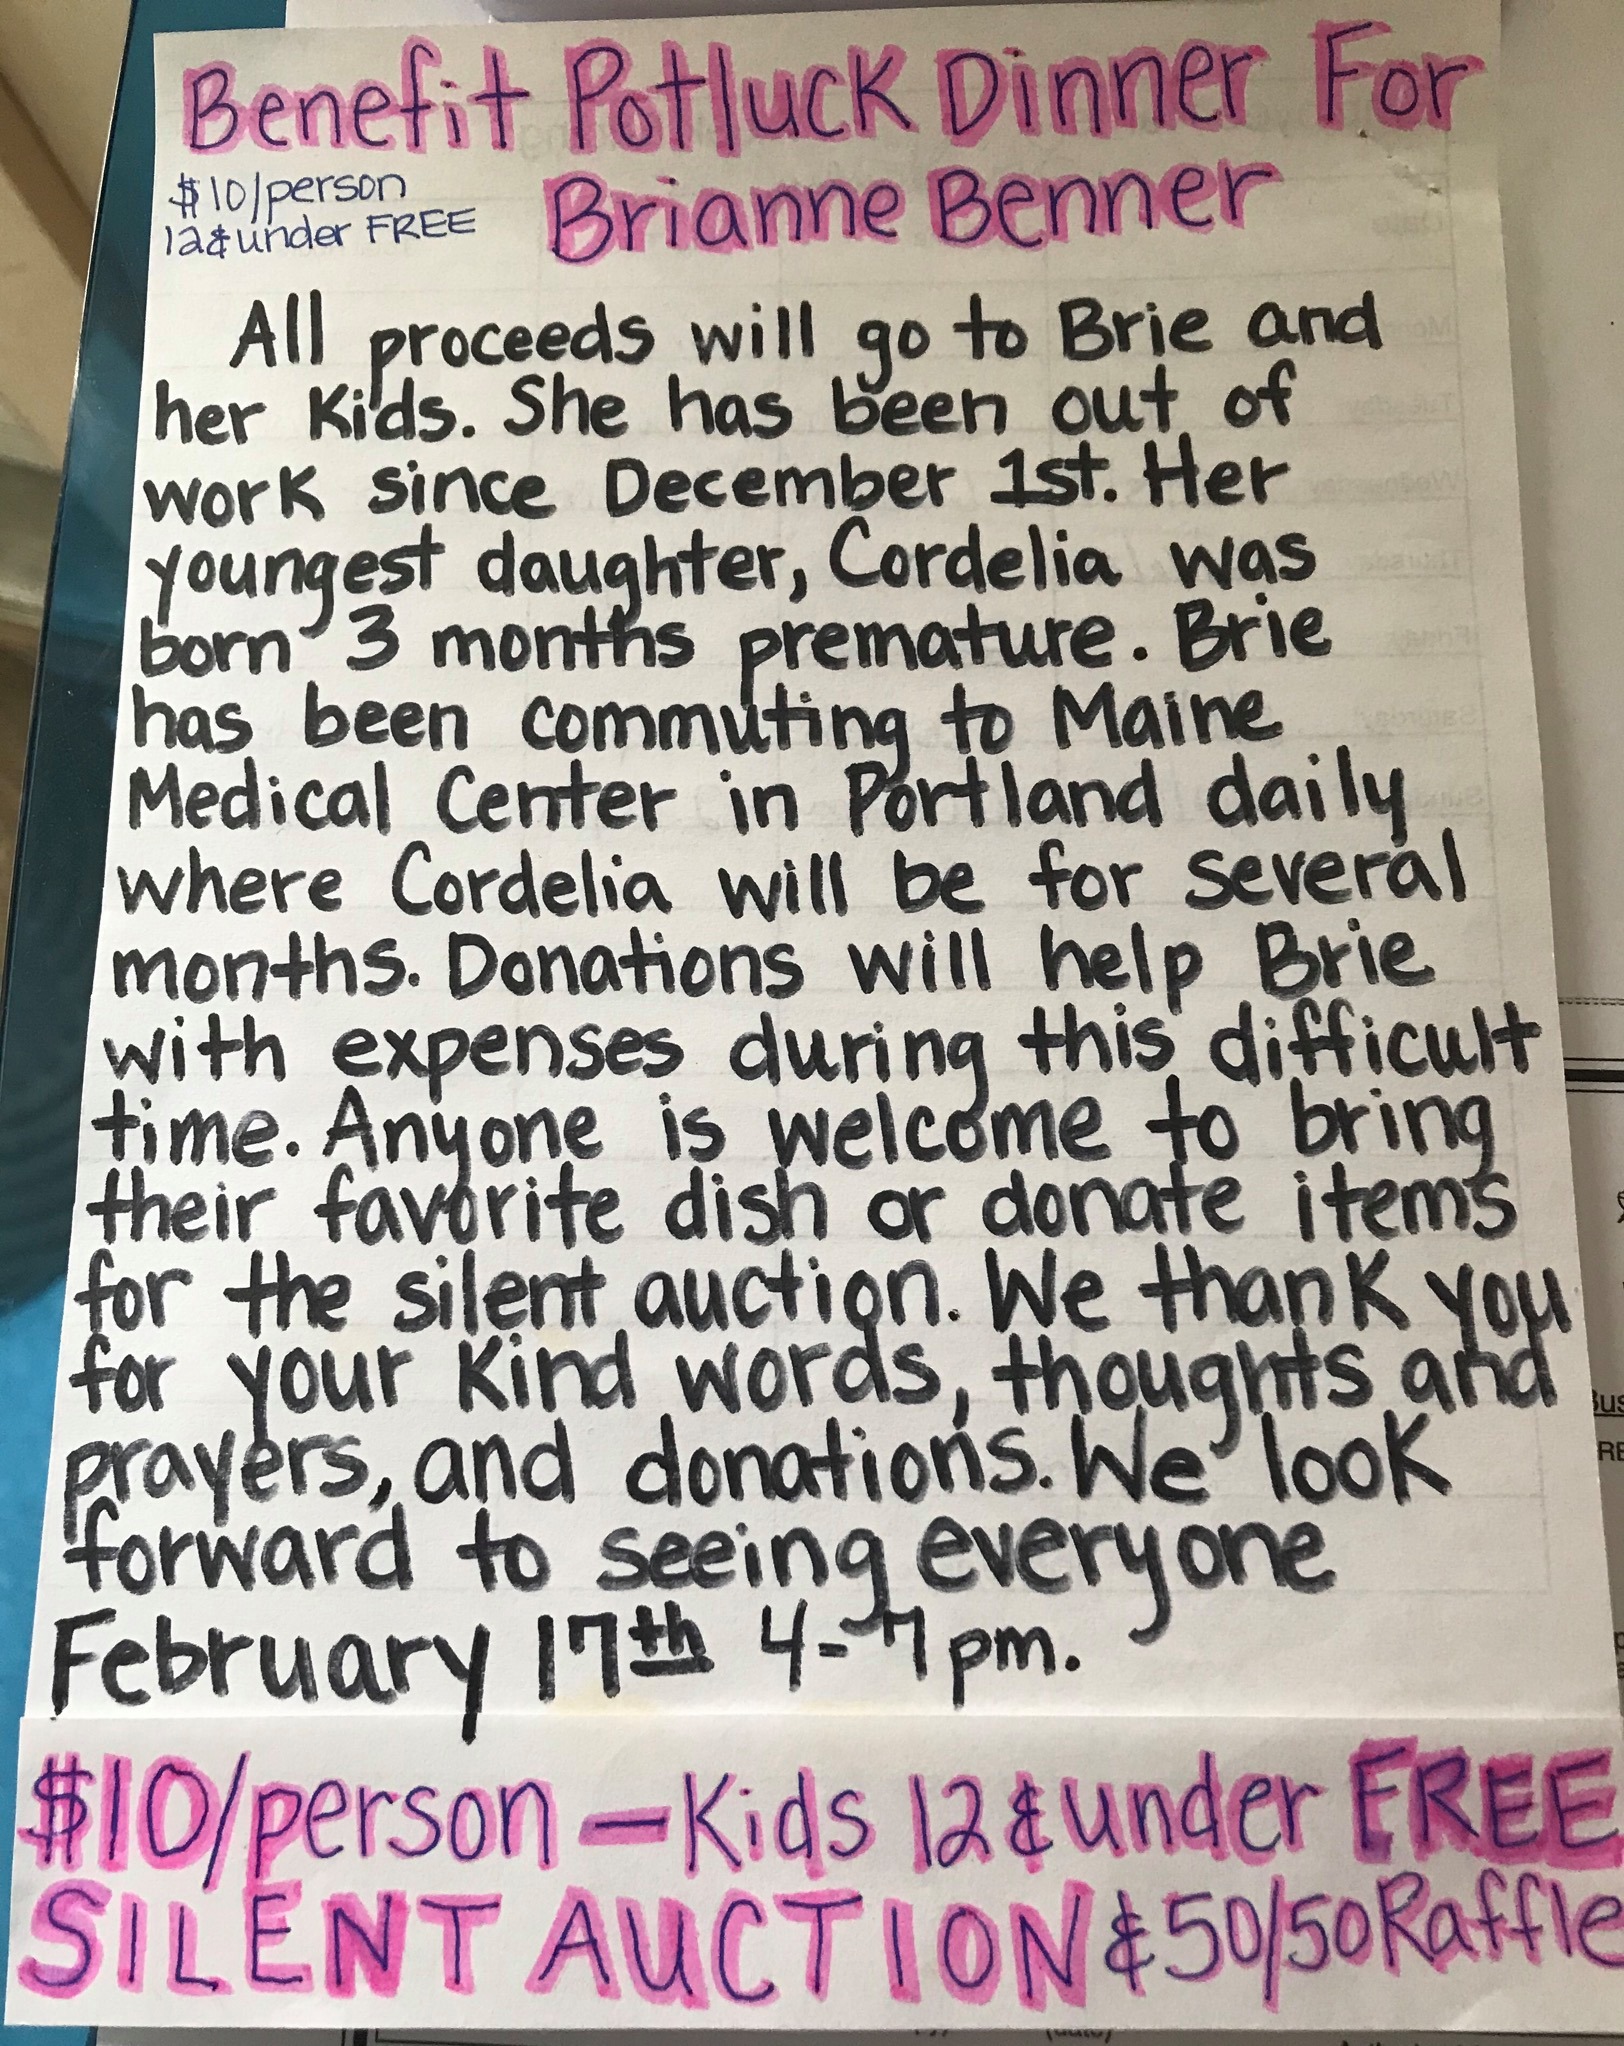 Benefit Potluck Dinner For
$10/person
12 & under FREE
Brianne Benner
All proceeds will go to Brie and
her Kids. She has been out of
work since December 1st. Her
youngest daughter, Cordelia was
born 3 months premature. Brie
has been commuting to Maine
Medical Center in Portland daily
where Cordelia will be for several
months. Donations will help Brie
with expenses during this difficult
time. Anyone is welcome to bring
their favorite dish or donate items
for the silent auction. We thank you
for your kind words, thoughts and
prayers, and donations. We look
forward to seeing everyone
February 17th 4-7pm.
$10/person — Kids 12 & under FREE
SILENT AUCTION & 50/50 Raffle